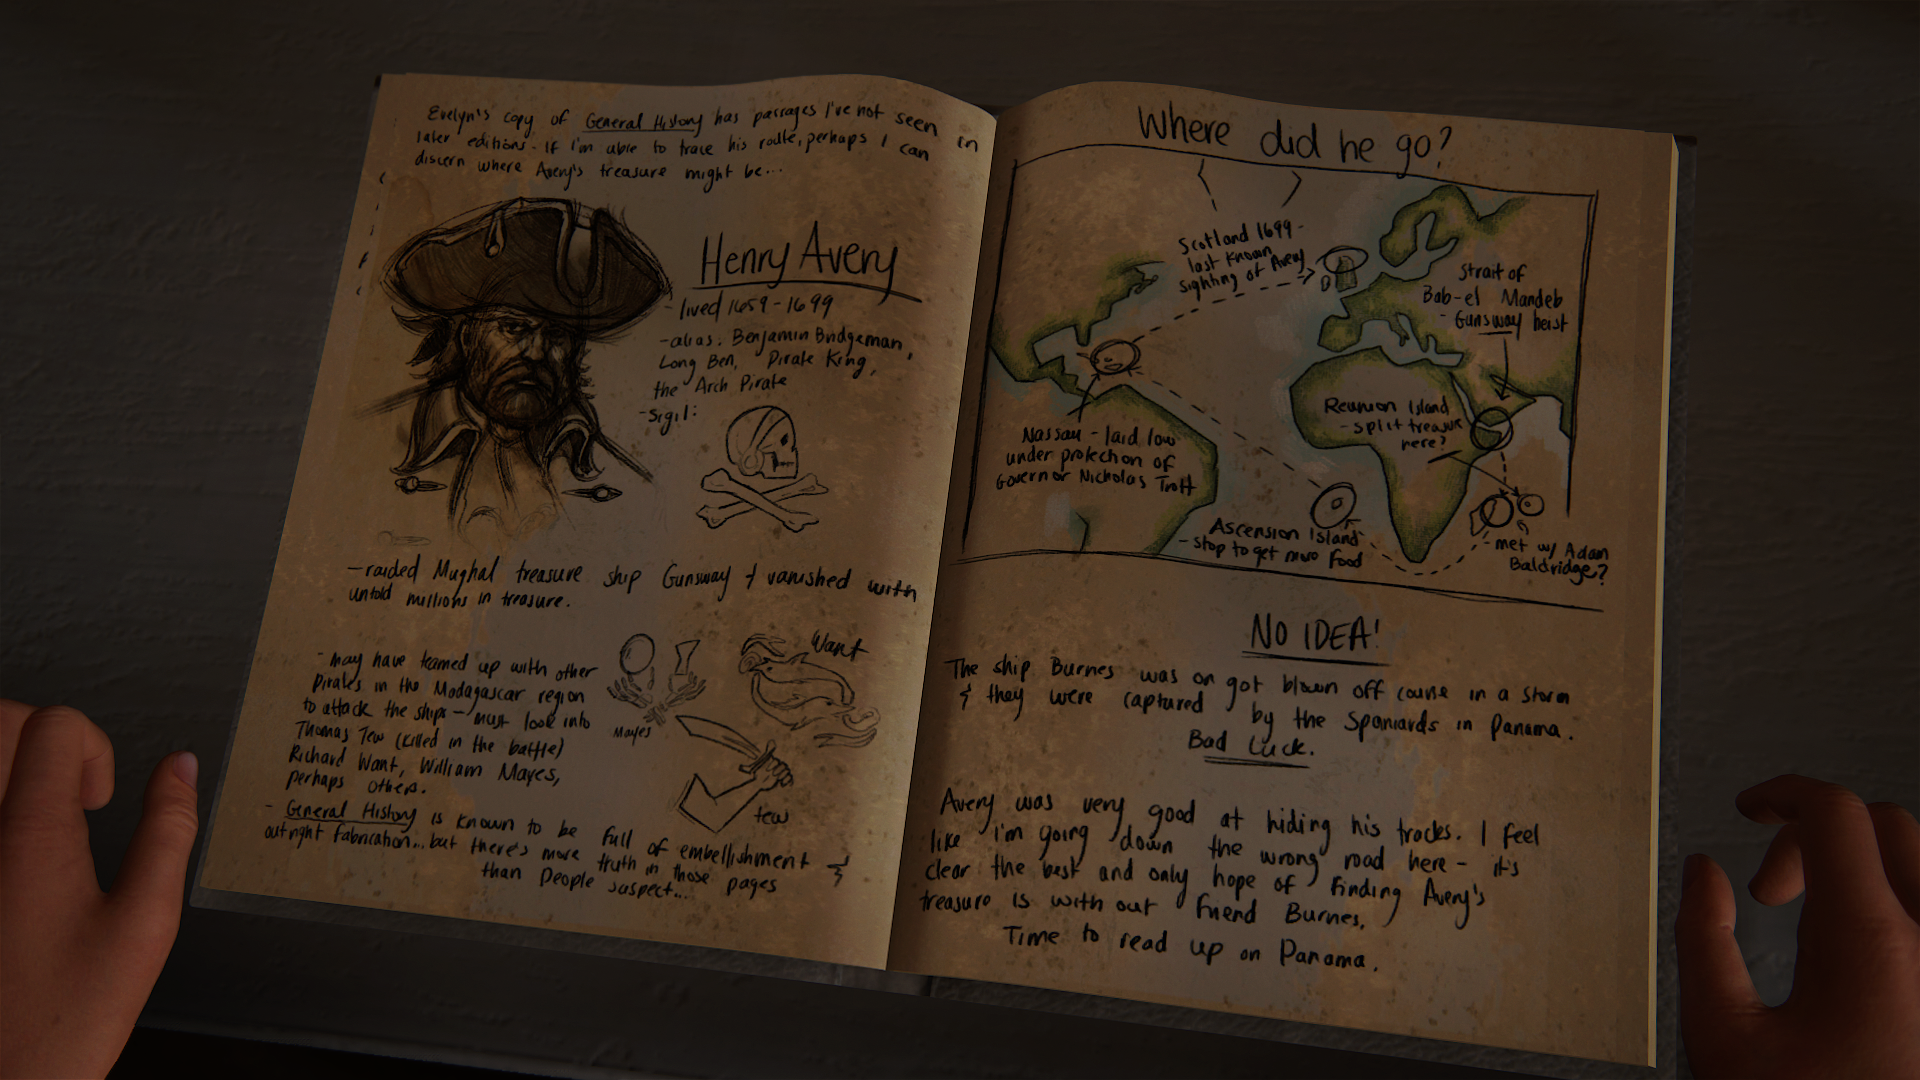 Evelyn's copy of General History has passages I've not seen in
later editions. If I'm able to trace his route, perhaps I can
discern where Avery's treasure might be...
Henry Avery
- lived 1659-1699
- alias: Benjamin Bridgeman,
Long Ben, Pirate King,
the Arch Pirate
- Sigil:
- raided Mughal treasure ship Gunsway & vanished with
untold millions in treasure.
- may have teamed up with other
pirates in the Madagascar region
to attack the ships - must look into
Thomas Tew (killed in the battle)
Richard Want, William Mayes,
perhaps others.
Mayes
Want
Tew
- General History is known to be full of embellishment &
outright fabrication... but there's more truth in those pages
than people suspect...
Where did he go?
Scotland 1699 -
last known
sighting of Avery
Strait of
Bab-el Mandeb
- Gunsway heist
Reunion Island
- split treasure
here?
Nassau - laid low
under protection of
Governor Nicholas Trott
Ascension Island
- stop to get more food
- met w/ Adam
Baldridge?
NO IDEA!
The ship Burnes was on got blown off course in a storm
& they were captured by the Spaniards in Panama.
Bad Luck.
Avery was very good at hiding his tracks. I feel
like I'm going down the wrong road here - it's
clear the best and only hope of finding Avery's
treasure is with our friend Burnes.
Time to read up on Panama.